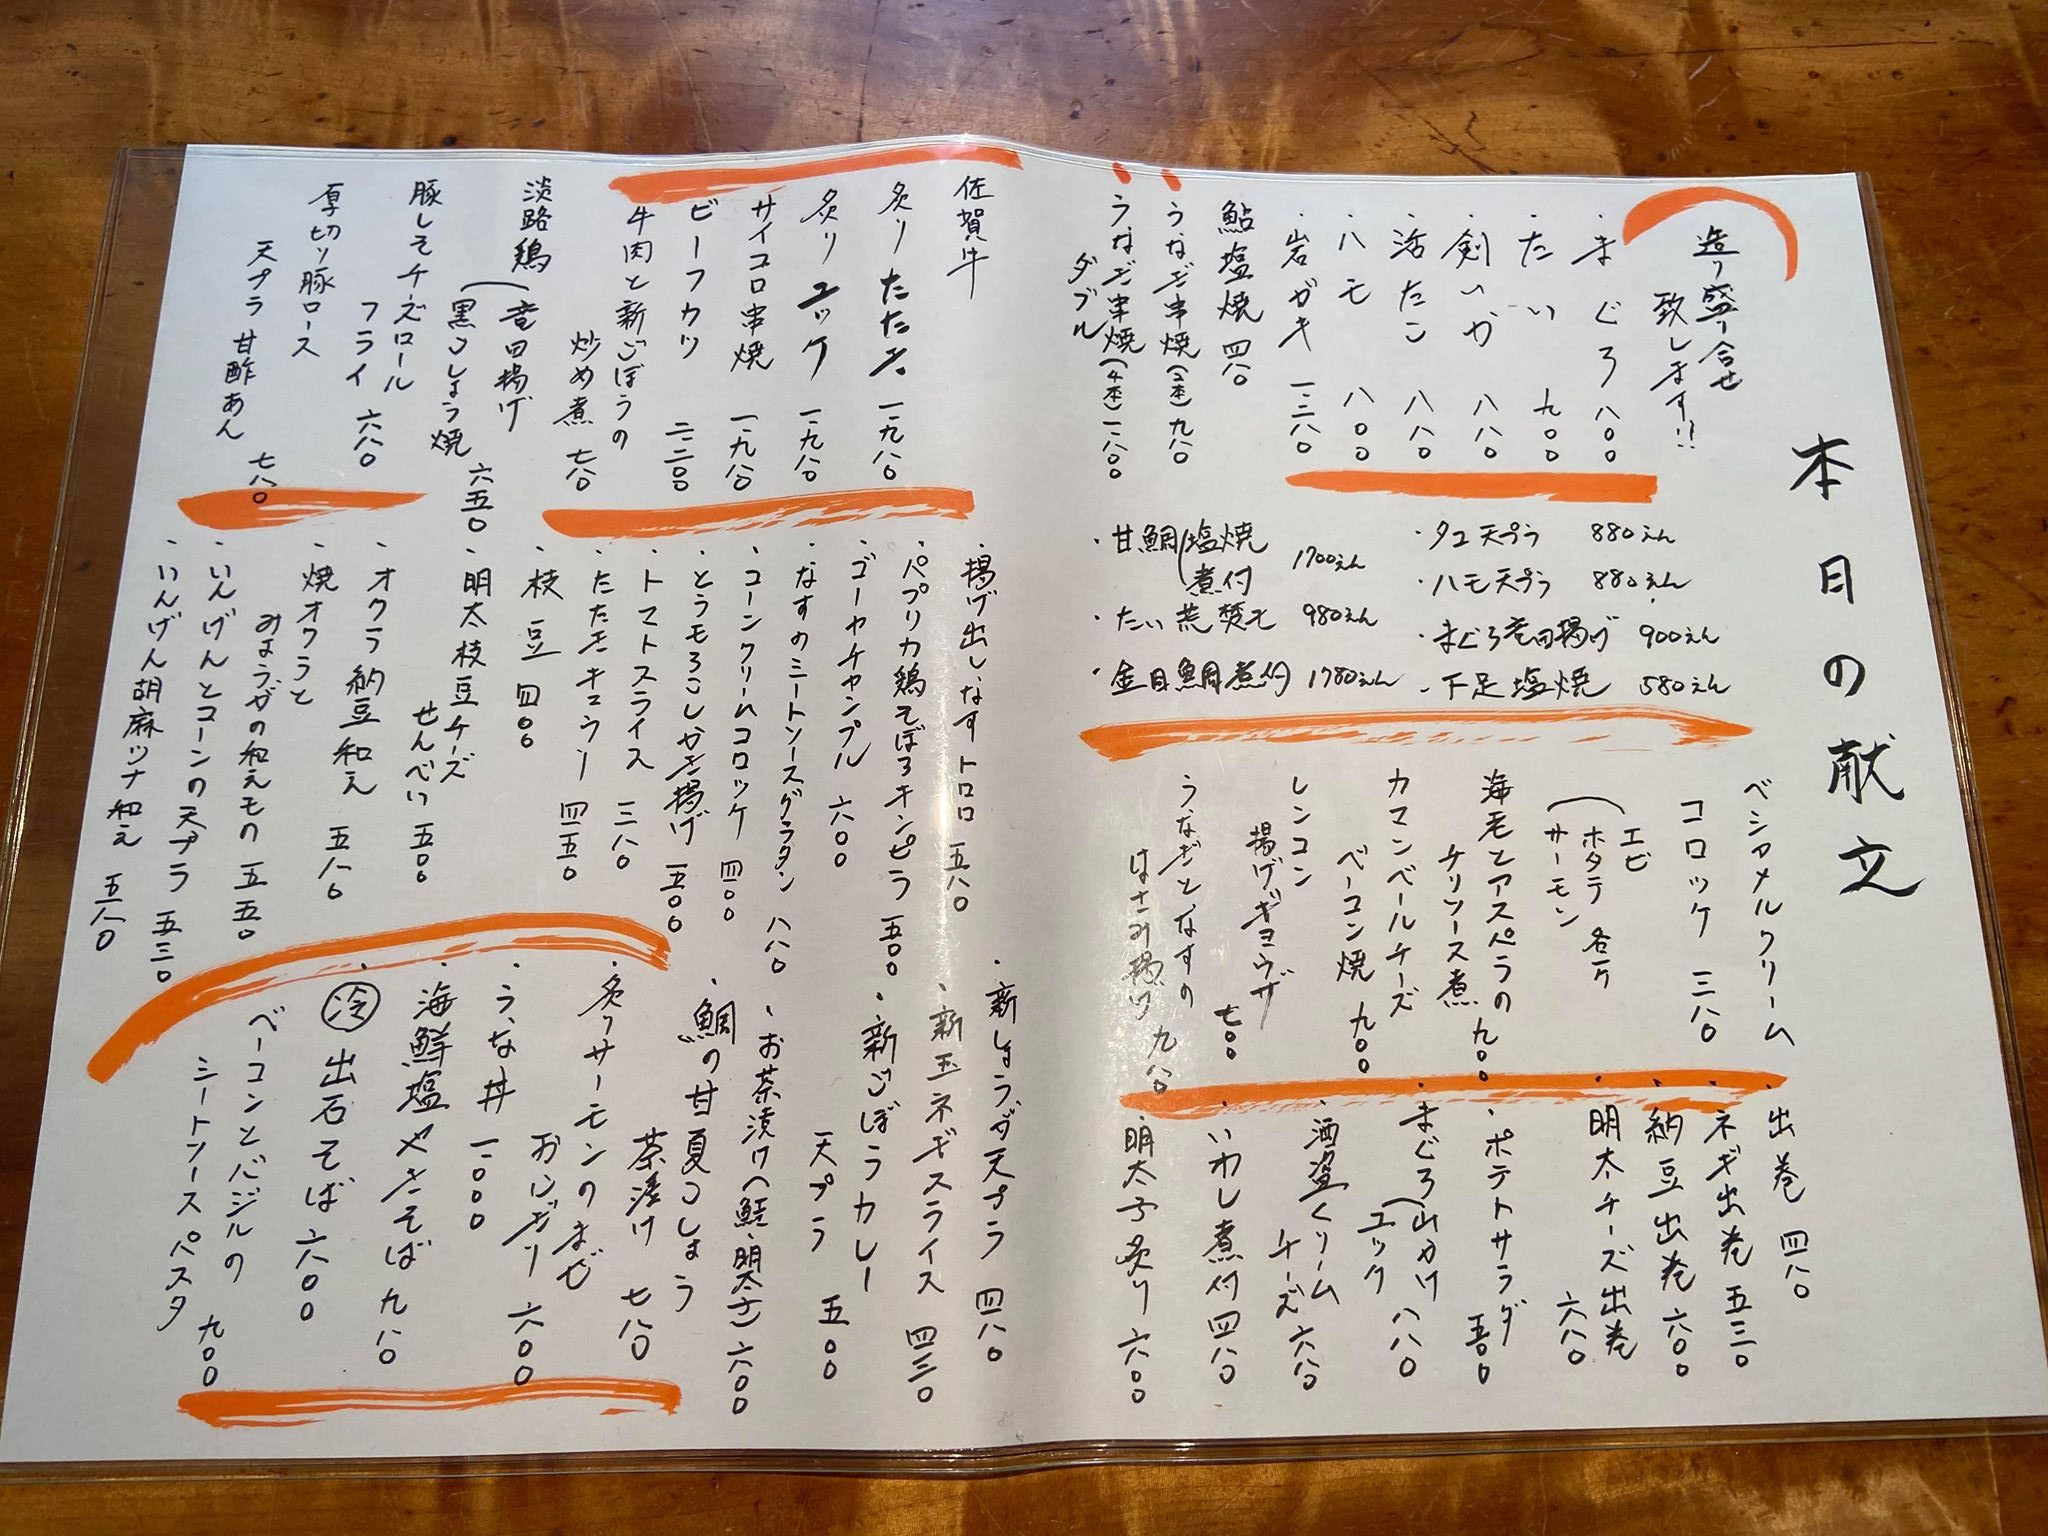 本日の献文
造り盛り合せ
致します!!
・まぐろ 八〇〇
・たい 九〇〇
・剣いか 八八〇
・活たこ 八八〇
・ハモ 八〇〇
・岩ガキ 一、三八〇
鮎塩焼 四八〇
・うなぎ串焼(2本) 九八〇
・うなぎ串焼(4本) 一、八〇〇
ダブル
・タコ天プラ 880えん
・ハモ天プラ 880えん
・まぐろ竜田揚げ 900えん
・下足塩焼 580えん
・甘鯛(塩焼
煮付 1700えん
・たい荒焚き 980えん
・金目鯛煮付 1780えん
ベシャメルクリーム
コロッケ 三八〇
(エビ
ホタテ 各一ケ
サーモン
海老とアスペラの
チリソース煮 九〇〇
カマンベールチーズ
ベーコン焼 九〇〇
レンコン
揚げギョウザ 七〇〇
うなぎとなすの
はさみ揚げ 九八〇
・出巻 四八〇
・ネギ出巻 五三〇
・納豆出巻 六〇〇
・明太チーズ出巻
六八〇
・ポテトサラダ 五〇〇
・まぐろ(山かけ
ユッケ 八八〇
・酒盗クリーム
チーズ 六八〇
・いわし煮付 四八〇
・明太子炙り 六〇〇
佐賀牛
炙りたたき 一、九八〇
炙りユッケ 一、九八〇
サイコロ串焼 一、九八〇
ビーフカツ 二、二〇〇
牛肉と新ごぼうの
炒め煮 七八〇
淡路鶏(竜田揚げ
黒こしょう焼 六五〇
豚しそチーズロール
フライ 六八〇
厚切り豚ロース
天プラ 甘酢あん 七八〇
・揚げ出しなすトロロ 五八〇
・パプリカ鶏そぼろキンピラ 五〇〇
・ゴーヤチャンプル 六〇〇
・なすのミートソースグラタン 八八〇
・コーンクリームコロッケ 四〇〇
・とうもろこしかき揚げ 五〇〇
・トマトスライス 三八〇
・たたきキュウリ 四五〇
・枝豆 四〇〇
・明太枝豆チーズ
せんべい 五〇〇
・オクラ納豆和え 五八〇
・焼オクラと
みょうがの和えもの 五五〇
・いんげんとコーンの天プラ 五三〇
・いんげん胡麻ツナ和え 五八〇
・新しょうが天プラ 四八〇
・新玉ネギスライス 四三〇
・新ごぼうカレー
天プラ 五〇〇
・お茶漬け(鮭・明太子) 六〇〇
・鯛の甘夏こしょう
茶漬け 七八〇
・炙りサーモンのまぜ
おにぎり 六〇〇
・うな丼 一、〇〇〇
・海鮮塩やきそば 九八〇
・冷 出石そば 六〇〇
ベーコンとバジルの
ミートソースパスタ 九〇〇